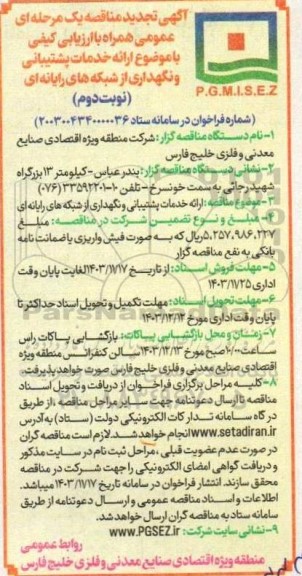 آگهی تجدید مناقصه یک مرحله ای
عمومی همراه با ارزیابی کیفی
با موضوع ارائه خدمات پشتیبانی
و نگهداری از شبکه های رایانه ای
(نوبت دوم)
P.G.M.I.S.E.Z
(شماره فراخوان در سامانه ستاد ۲۰۰۳۰۰۴۳۴۰۰۰۰۰۳۶)
۱-نام دستگاه مناقصه گزار: شرکت منطقه ویژه اقتصادی صنایع
معدنی و فلزی خلیج فارس
۲-نشانی دستگاه مناقصه گزار: بندرعباس-کیلومتر ۱۳ بزرگراه
شهید رجائی به سمت خونسرخ - تلفن ۱۰-۳۳۵۹۲۲۰۱ (۰۷۶)
۳-موضوع مناقصه: ارائه خدمات پشتیبانی و نگهداری از شبکه های رایانه ای
۴-مبلغ و نوع تضمین شرکت در مناقصه: مبلغ
۵,۲۵۷,۹۸۶,۲۲۷ ریال که به صورت فیش واریزی یا ضمانت نامه
بانکی به نفع مناقصه گزار
۵-مهلت فروش اسناد: از تاریخ ۱۴۰۳/۱۱/۱۷ لغایت پایان وقت
اداری ۱۴۰۳/۱۱/۲۵
۶-مهلت تحویل اسناد: مهلت تکمیل و تحویل اسناد حداکثر تا
پایان وقت اداری مورخ ۱۴۰۳/۱۲/۱۲
۷-زمان و محل بازگشایی پاکات: بازگشایی پاکات راس
ساعت ۷:۰۰ صبح مورخ ۱۴۰۳/۱۲/۱۳ سالن کنفرانس منطقه ویژه
اقتصادی صنایع معدنی و فلزی خلیج فارس صورت خواهد پذیرفت.
۸-کلیه مراحل برگزاری فراخوان از دریافت و تحویل اسناد
مناقصه تا ارسال دعوتنامه جهت سایر مراحل مناقصه، از طریق
درگاه سامانه تدارکات الکترونیکی دولت (ستاد) به آدرس
www.setadiran.ir انجام خواهد شد. لازم است مناقصه گران
در صورت عدم عضویت قبلی، مراحل ثبت نام در سایت مذکور
و دریافت گواهی امضای الکترونیکی را جهت شرکت در مناقصه
محقق سازند. انتشار فراخوان در سامانه تاریخ ۱۴۰۳/۱۱/۱۷ میباشد.
اطلاعات و اسناد مناقصه عمومی و ارسال دعوتنامه از طریق
سامانه ستاد به مناقصه گران ارسال خواهد شد.
۹-نشانی سایت شرکت: www.PGSEZ.ir
روابط عمومی
منطقه ویژه اقتصادی صنایع معدنی و فلزی خلیج فارس